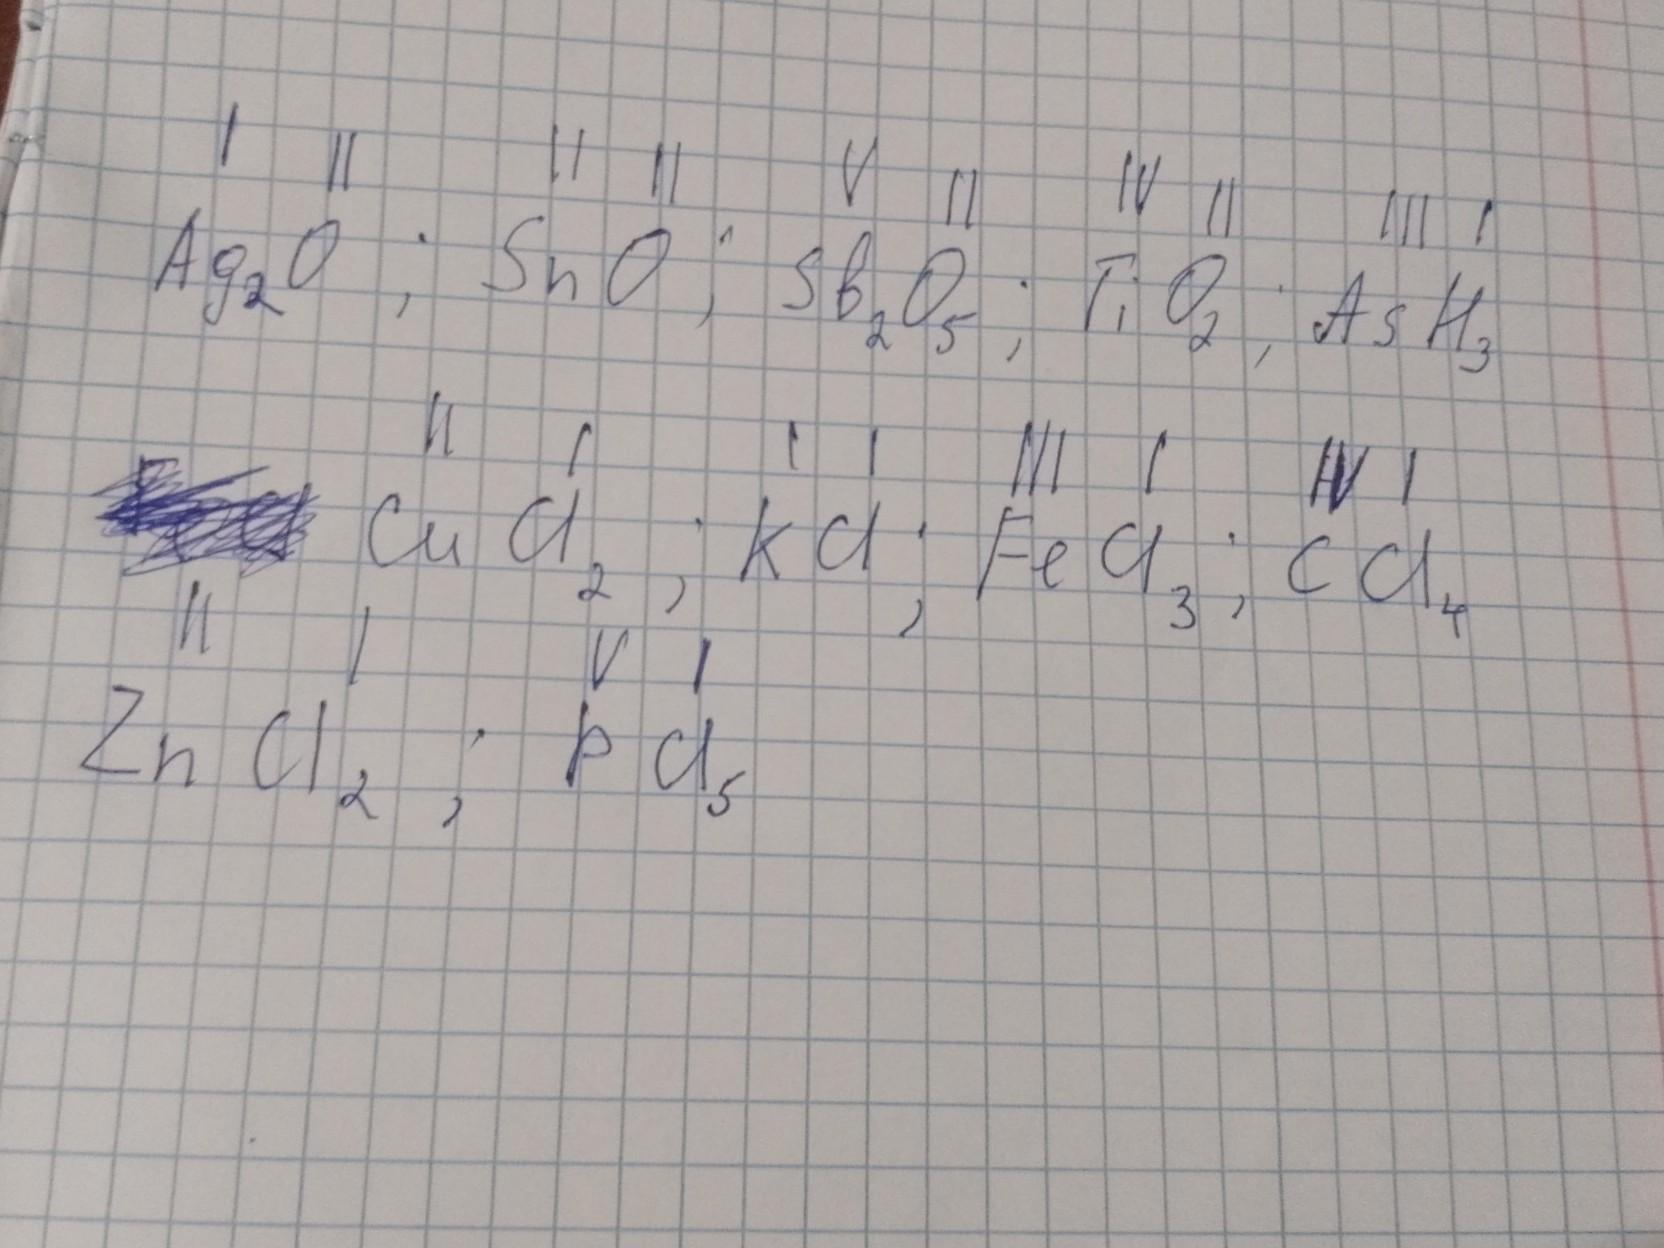 I II II II V II IV II III I
Ag₂O ; SnO ; Sb₂O₅ ; TiO₂ ; AsH₃
II I I I III I IV I
CuCl₂ ; KCl ; FeCl₃ ; CCl₄
II I V I
ZnCl₂ ; PCl₅